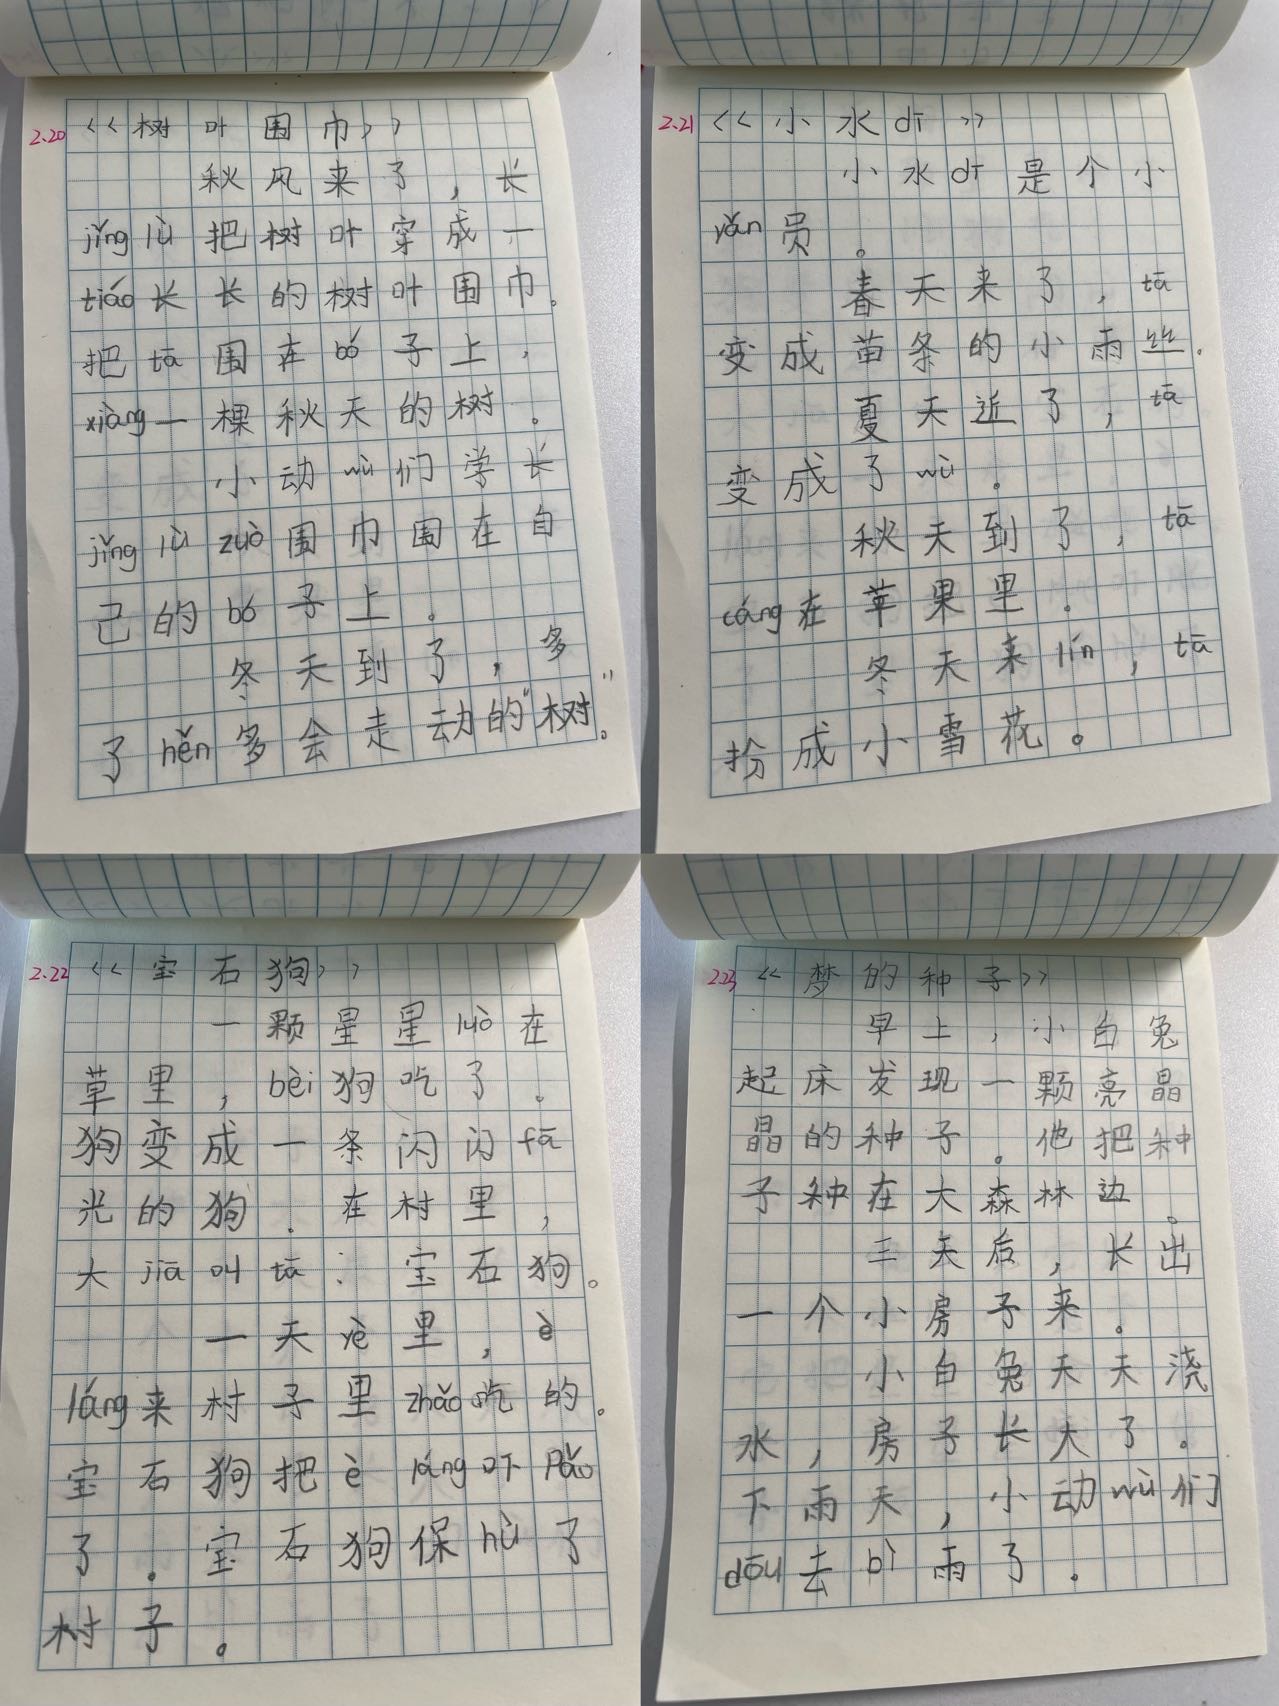 2.20 《树叶围巾》
秋风来了，长
jǐng lù 把树叶穿成一
tiáo 长长的树叶围巾。
把 tā 围在 bó 子上，
xiàng 一棵秋天的树。
小动 wù 们学长
jǐng lù zuò 围巾围在自
己的 bó 子上。
冬天到了，多
了 hěn 多会走动的“树”。
2.21 《小水 dī》
小水 dī 是个小
yǎn 员。
春天来了，tā
变成苗条的小雨丝.
夏天近了，tā
变成了 wù 。
秋天到了，tā
cáng 在苹果里.
冬天来 lín，tā
扮成小雪花。
2.22 《宝石狗》
一颗星星 luò 在
草里，bèi 狗吃了。
狗变成一条闪闪 fā
光的狗.在村里，
大 jiā 叫 tā：宝石狗。
一天 yè 里，è
láng 来村子里 zhǎo 吃的。
宝石狗把 è láng 吓 pǎo
了.宝石狗保 hù 了
村子。
2.23 《梦的种子》
早上，小白兔
起床发现一颗亮晶
晶的种子。他把种
子种在大森林边。
三天后，长出
一个小房子来。
小白兔天天浇
水，房子长大了。
下雨天，小动 wù 们
dōu 去 bì 雨了.